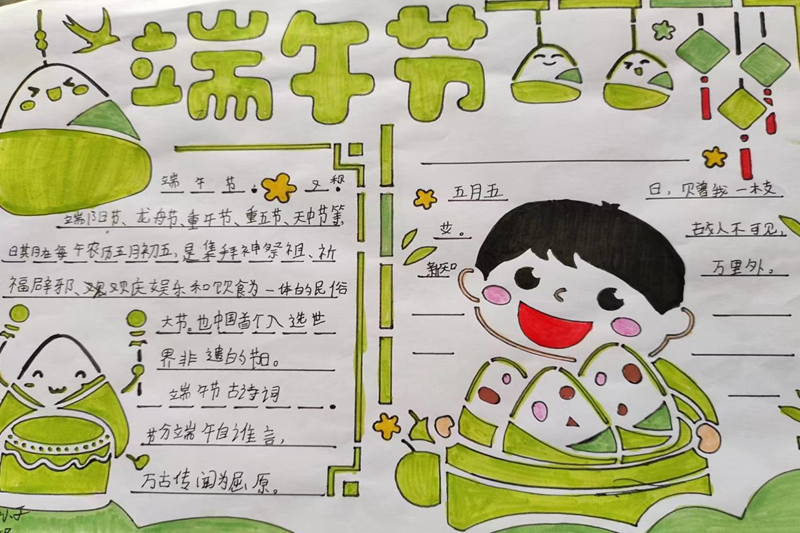 端午节
端午节 又称
端阳节、龙舟节、重午节、重五节、天中节等,
日期在每午农历五月初五,是集拜神祭祖、祈
福辟邪、欢庆娱乐和饮食为一体的民俗
大节。也中国首个入选世
界非遗的节日。
端午节古诗词
节分端午自谁言,
万古传闻为屈原。
五月五日,赠我一枝
艾。故人不可见,
新知万里外。